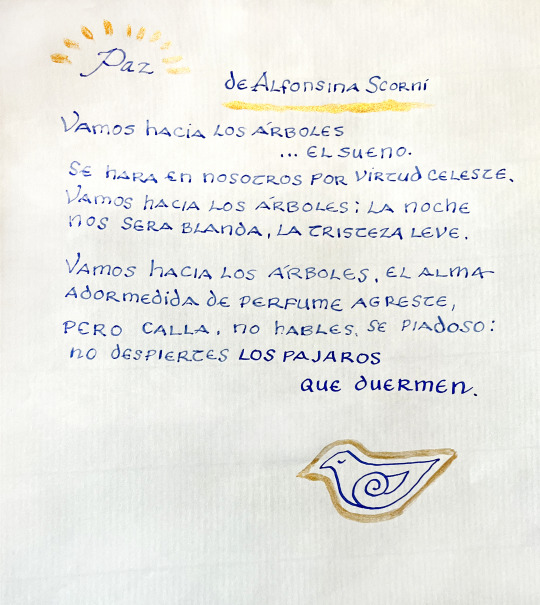 Paz
de Alfonsina Scorni
Vamos hacia los árboles
... el sueno.
Se hara en nosotros por virtud celeste.
Vamos hacia los árboles; la noche
nos sera blanda, la tristeza leve.
Vamos hacia los árboles, el alma
adormedida de perfume agreste,
pero calla, no hables, se piadoso:
no despiertes los pajaros
que duermen.